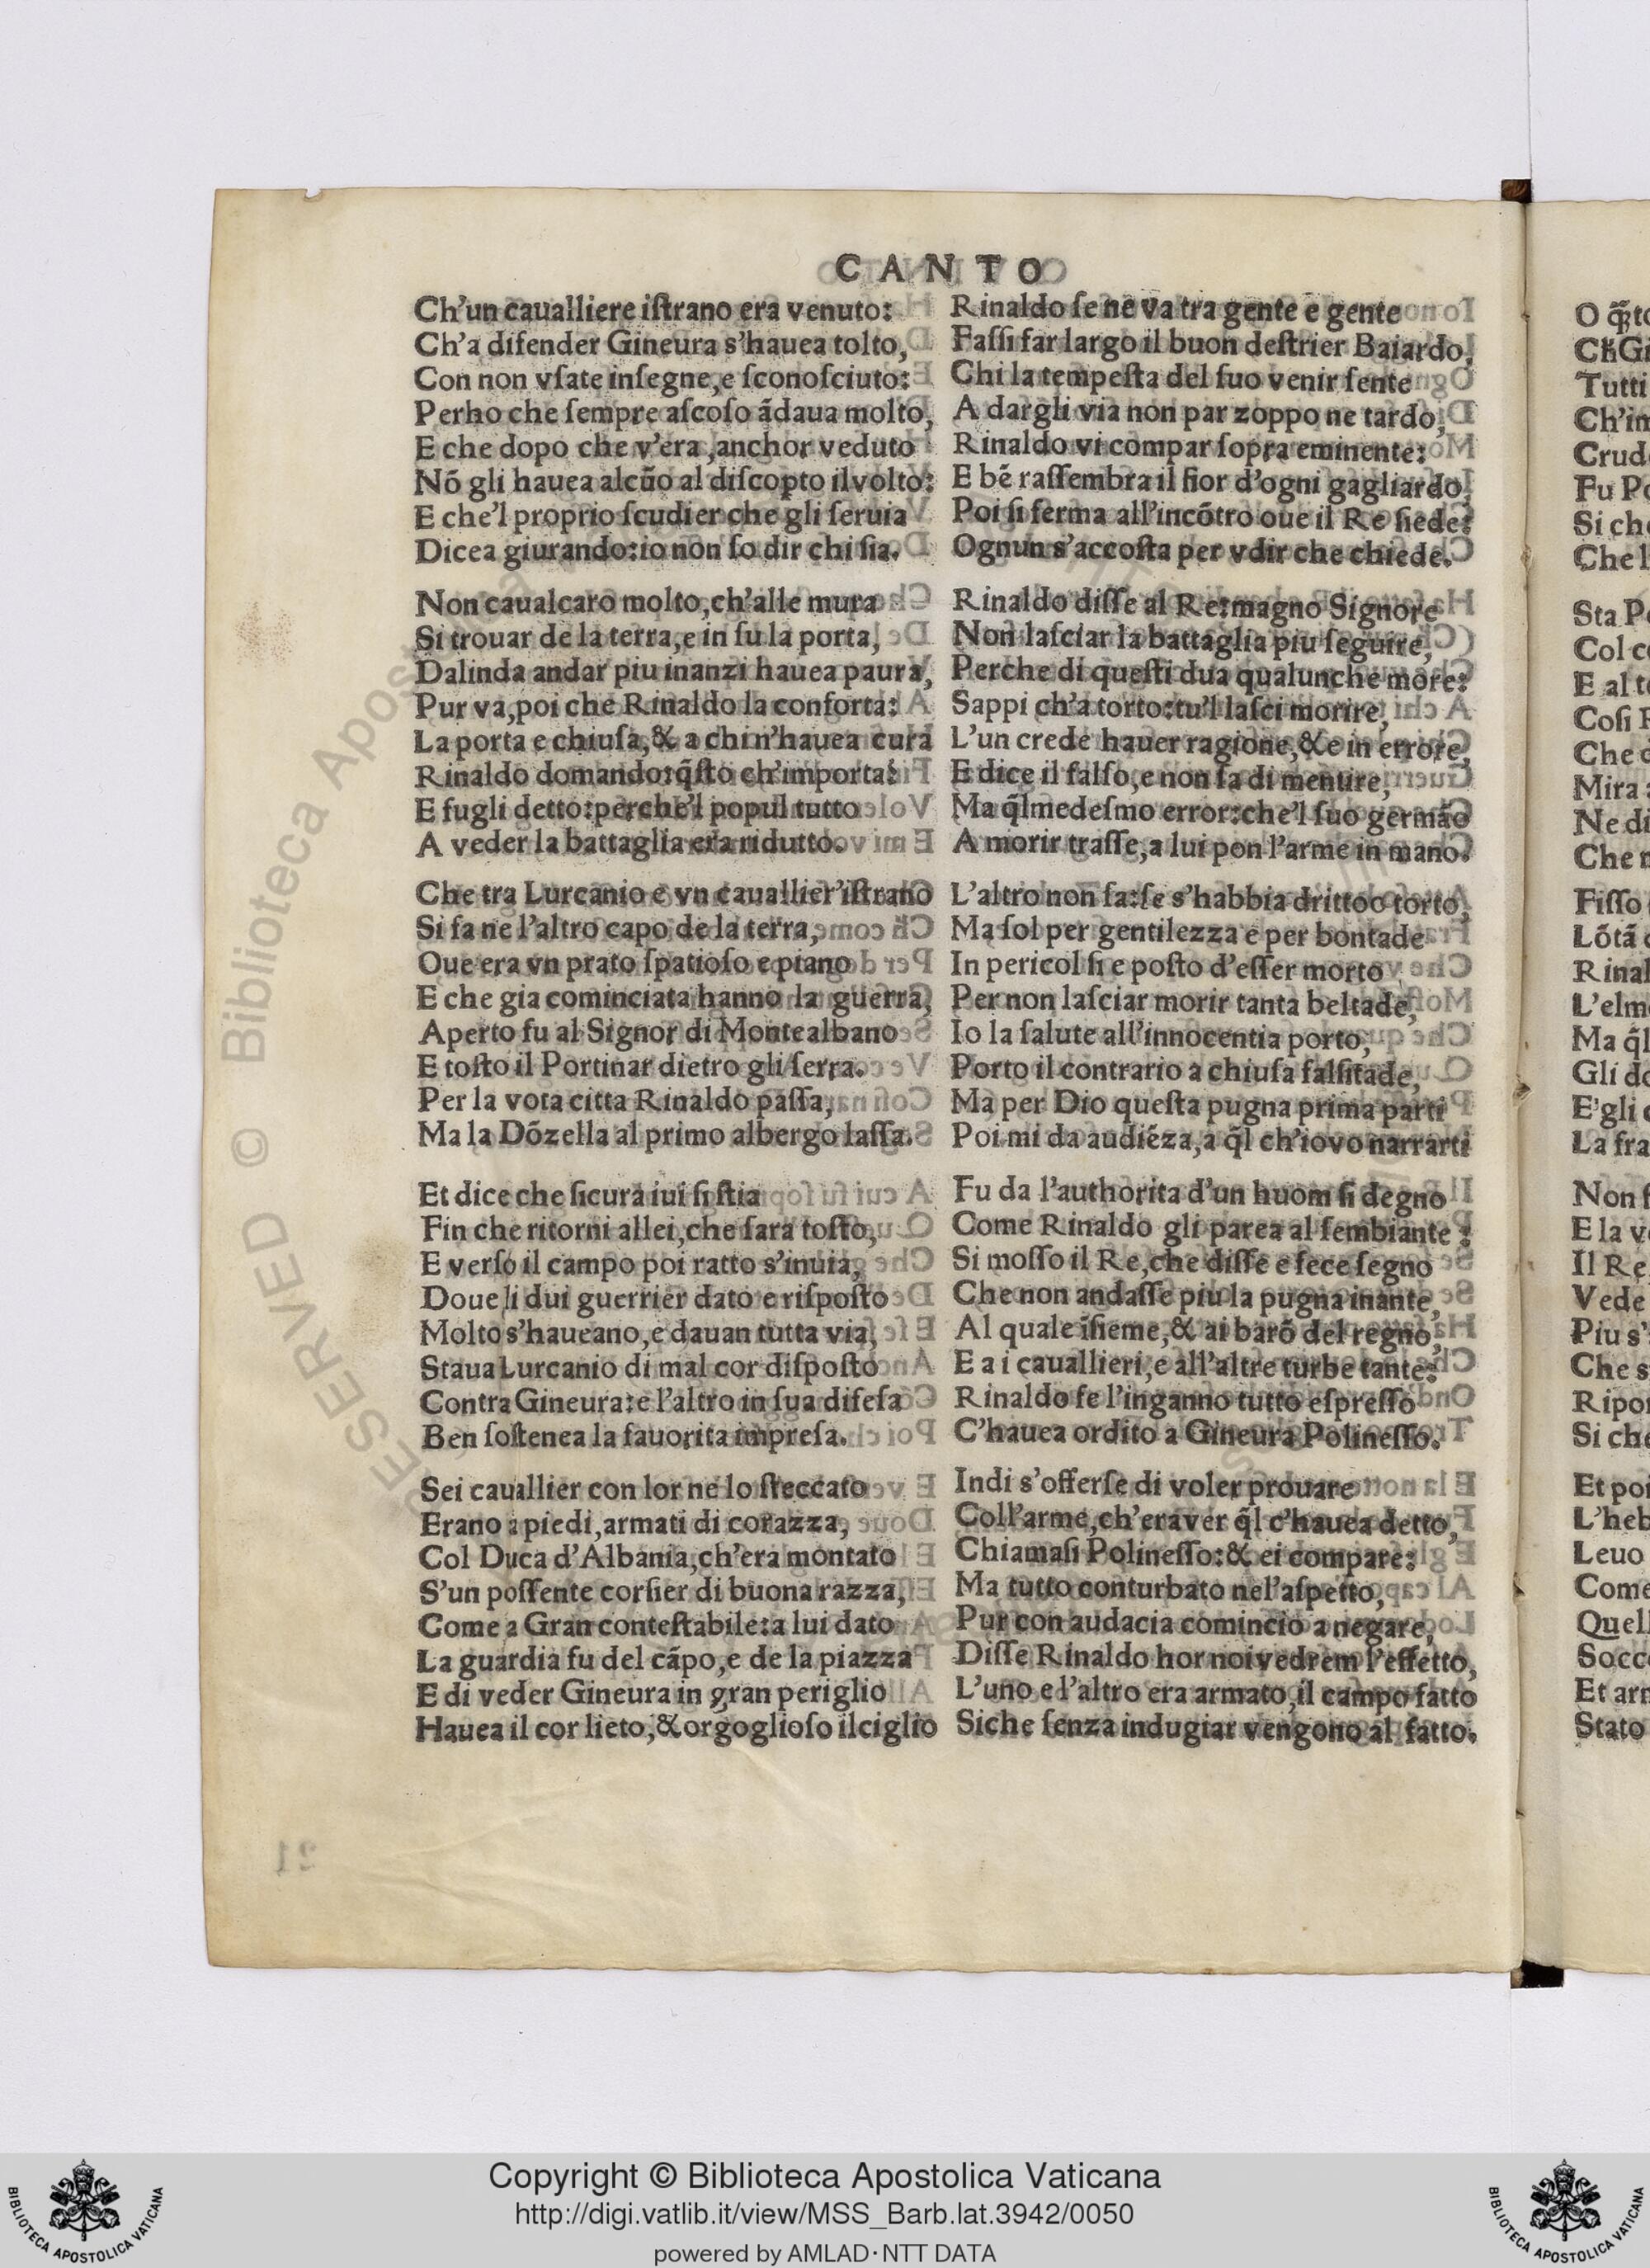 CANTO
Ch'un caualliere iſtrano era venuto:
Ch'a difender Gineura s'hauea tolto,
Con non vſate inſegne,e ſconoſciuto:
Perho che ſempre aſcoſo ãdaua molto,
E che dopo che v'era,anchor veduto
Nõ gli hauea alcũo al diſcopto ilvolto:
E che'l proprio ſcudier che gli ſeruia
Dicea giurando:io non ſo dir chi ſia.
Non caualcaro molto,ch'alle mura
Si trouar de la terra,e in ſu la porta,
Dalinda andar piu inanzi hauea paura,
Pur va,poi che Rinaldo la conforta:
La porta e chiuſa,& a chi n'hauea cura
Rinaldo domando:q̃ſto ch'importa?
E fugli detto:perche'l popul tutto
A veder la battaglia era ridutto.
Che tra Lurcanio e vn cauallier'iſtrano
Si fa ne l'altro capo de la terra,
Oue era vn prato ſpatioſo e piano
E che gia cominciata hanno la guerra,
Aperto fu al Signor di Montealbano
E toſto il Portinar dietro gli ſerra.
Per la vota citta Rinaldo paſſa,
Ma la Dõzella al primo albergo laſſa.
Et dice che ſicura iui ſi ſtia
Fin che ritorni allei,che ſara toſto,
E verſo il campo poi ratto s'inuia,
Doue li dui guerrier dato e riſpoſto
Molto s'haueano,e dauan tutta via,
Staua Lurcanio di mal cor diſpoſto
Contra Gineura:e l'altro in ſua difeſa
Ben ſoſtenea la fauorita impreſa.
Sei cauallier con lor ne lo ſteccato
Erano a piedi,armati di corazza,
Col Duca d'Albania,ch'era montato
S'un poſſente corſier di buona razza,
Come a Gran conteſtabile:a lui dato
La guardia fu del cãpo,e de la piazza
E di veder Gineura in gran periglio
Hauea il cor lieto,&orgoglioſo ilciglio
Rinaldo ſe ne va tra gente e gente
Faſſi far largo il buon deſtrier Baiardo,
Chi la tempeſta del ſuo venir ſente
A dargli via non par zoppo ne tardo,
Rinaldo vi compar ſopra eminente:
E bẽ raſſembra il fior d'ogni gagliardo,
Poi ſi ferma all'incõtro oue il Re ſiede:
Ognun s'accoſta per vdir che chiede.
Rinaldo diſſe al Re:magno Signore
Non laſciar la battaglia piu ſeguire,
Perche di queſti dua qualunche more:
Sappi ch'a torto:tu'l laſci morire,
L'un crede hauer ragione,&e in errore,
E dice il falſo,e non ſa di mentire,
Ma q̃lmedeſmo error:che'l ſuo germão
A morir traſſe,a lui pon l'arme in mano.
L'altro non ſa:ſe s'habbia drittoo torto,
Ma ſol per gentilezza e per bontade
In pericol ſi e poſto d'eſſer morto
Per non laſciar morir tanta beltade,
Io la ſalute all'innocentia porto,
Porto il contrario a chiuſa falſitade,
Ma per Dio queſta pugna prima parti
Poi mi da audiẽza,a q̃l ch'iovo narrarti
Fu da l'authorita d'un huom ſi degno
Come Rinaldo gli parea al ſembiante:
Si moſſo il Re,che diſſe e fece ſegno
Che non andaſſe piu la pugna inante,
Al quale ĩſieme,& ai barõ del regno,
E a i cauallieri,e all'altre turbe tante:
Rinaldo fe l'inganno tutto eſpreſſo
C'hauea ordito a Gineura Polineſſo.
Indi s'offerſe di voler prouare
Coll'arme,ch'eraver q̃l c'hauea detto,
Chiamaſi Polineſſo:& ei compare:
Ma tutto conturbato nel'aſpetto,
Pur con audacia comincio a negare,
Diſſe Rinaldo hor noi vedrem l'effetto,
L'uno e l'altro era armato,il campo fatto
Siche ſenza indugiar vengono al fatto.
O q̃ſto
Ch̃Gi
Tutti
Ch'in
Crud
Fu Po
Si che
Che l
Sta Po
Col co
E al t
Coſi
Che
Mira
Ne di
Che
Fiſſo
Lõtã
Rinal
L'elm
Ma q̃l
Gli do
E'gli
La fra
Non
E la v
Il Re
Vede
Piu s'
Che s
Ripo
Si che
Et poi
L'heb
Leuo
Come
Quel
Socc
Et arm
Stato
© Biblioteca Apost
Copyright © Biblioteca Apostolica Vaticana
http://digi.vatlib.it/view/MSS_Barb.lat.3942/0050
powered by AMLAD·NTT DATA
BIBLIOTECA APOSTOLICA VATICANA
BIBLIOTECA APOSTOLICA VATICANA